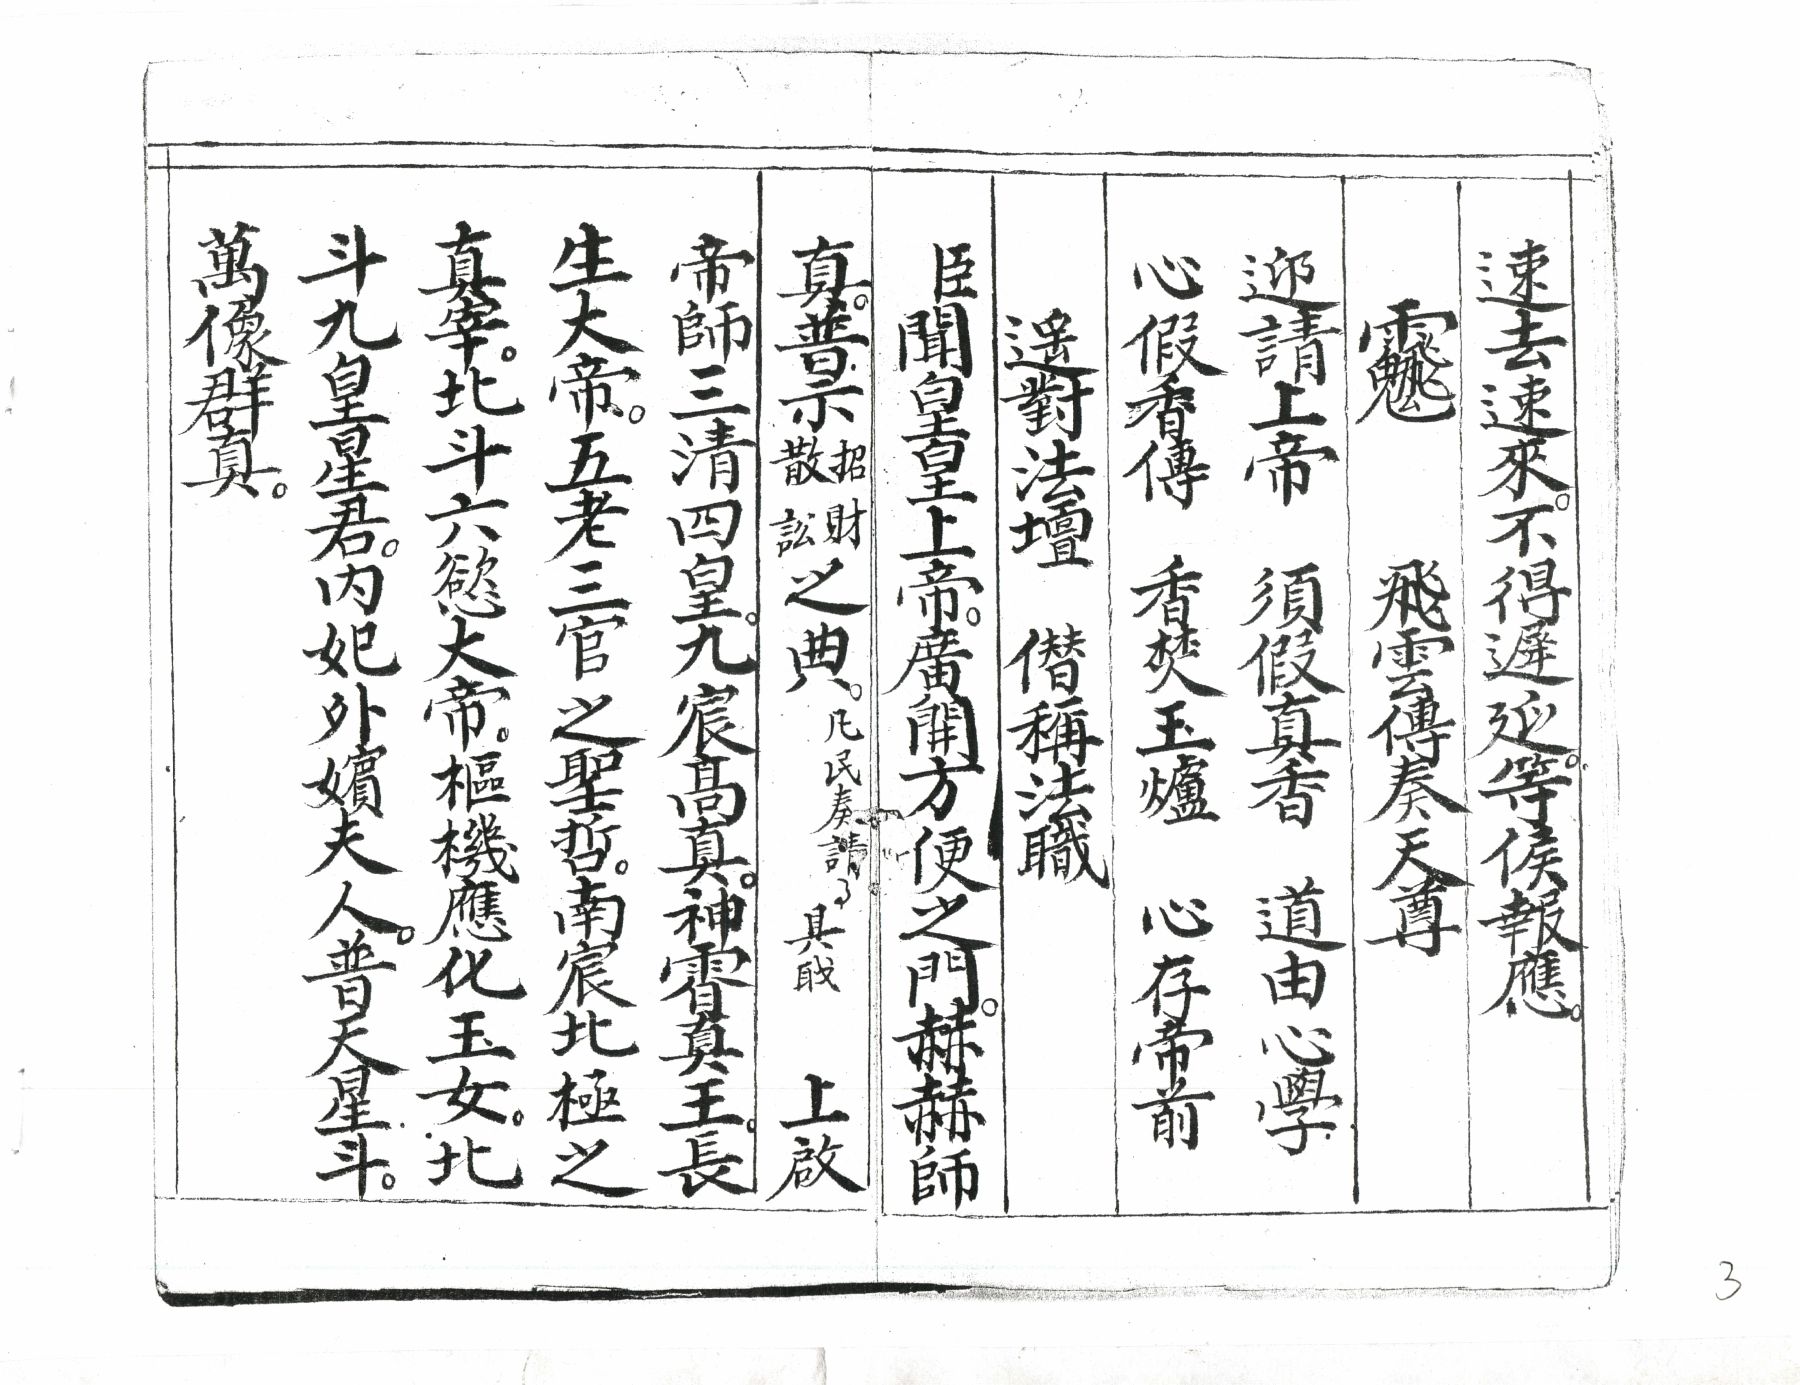 速去速來。不得遲延。等侯報應。
飛雲傳奏天尊
迎請上帝 須假真香 道由心學
心假香傳 香焚玉爐 心存帝前
遥對法壇 僭稱法職
臣聞皇皇上帝。廣開方便之門。赫赫師
真。普示招財散訟之典。凡民奏請 具戢 上啟
帝師三清四皇。九宸高真。神霄真王。長
生大帝。五老三官之聖哲。南宸北極之
真宰。北斗六慾大帝。樞機應化玉女。北
斗九皇星君。内妃外嬪夫人。普天星斗。
萬像群真。
3